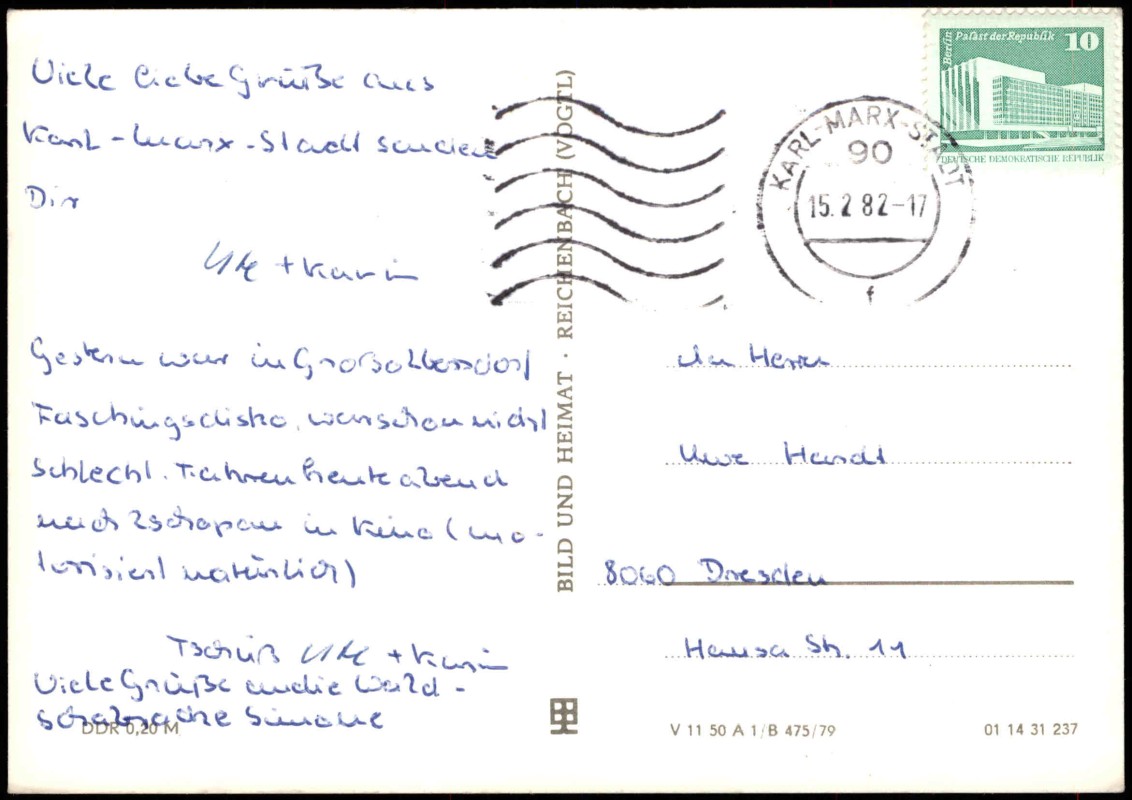 Viele liebe Grüße aus
Karl-Marx-Stadt senden
Dir
Ute + Karin
Gestern war in Großolbersdorf
Faschingsdisko, war schon nicht
schlecht. Fahren heute abend
nach Zschopau in Kino (mo-
torisiert natürlich)
Tschüß Ute + Karin
Viele Grüße an die Wald-
schabracke Simone
DDR 0,20 M
BILD UND HEIMAT · REICHENBACH (VOGTL)
KARL-MARX-STADT
90
15.2.82-17
f
Berlin Palast der Republik 10
DEUTSCHE DEMOKRATISCHE REPUBLIK
An Herrn
Uwe
8060 Dresden
Hansa Str. 11
V 11 50 A 1/B 475/79
01 14 31 237